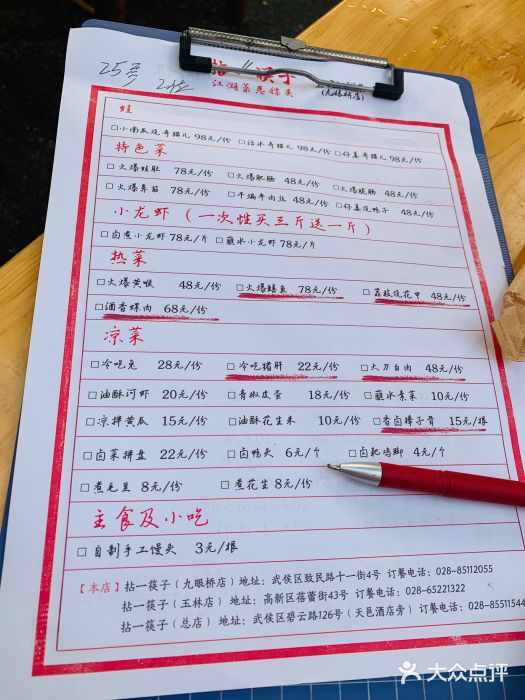 25号
拈一筷子
江湖菜恩锦尖
(九眼桥店)
蛙
□小南瓜烧奇猫儿 98元/份 □沾水奇猫儿 98元/份 □仔姜奇猫儿 98元/份
特色菜
□火爆蛙肚 78元/份 □火爆肥肠 48元/份 □火爆脆肠 48元/份
□火爆鼻筋 78元/份 □干煸牛肉丝 48元/份 □仔姜烧鸭子 48元/份
小龙虾（一次性买三斤送一斤）
□卤煮小龙虾 78元/斤 □蘸水小龙虾 78元/斤
热菜
□火爆黄喉 48元/份 □火爆鳝鱼 78元/份 □荔枝烧花甲 48元/份
□酒香螺肉 68元/份
凉菜
□冷吃兔 28元/份 □冷吃猪肝 22元/份 □大刀白肉 48元/份
□油酥河虾 20元/份 □青椒皮蛋 18元/份 □蘸水素菜 10元/份
□凉拌黄瓜 15元/份 □油酥花生米 10元/份 □香卤棒子骨 15元/根
□卤菜拼盘 22元/份 □卤鸭头 6元/个 □卤耙鸡脚 4元/个
□煮毛豆 8元/份 □煮花生 8元/份
主食及小吃
□自制手工馒头 3元/根
【本店】拈一筷子（九眼桥店）地址：武侯区致民路十一街4号 订餐电话：028-85112055
拈一筷子（玉林店）地址：高新区蓓蕾街43号 订餐电话：028-65221322
拈一筷子（总店）地址：武侯区碧云路126号（天邑酒店旁）订餐电话：028-8551154
大众点评